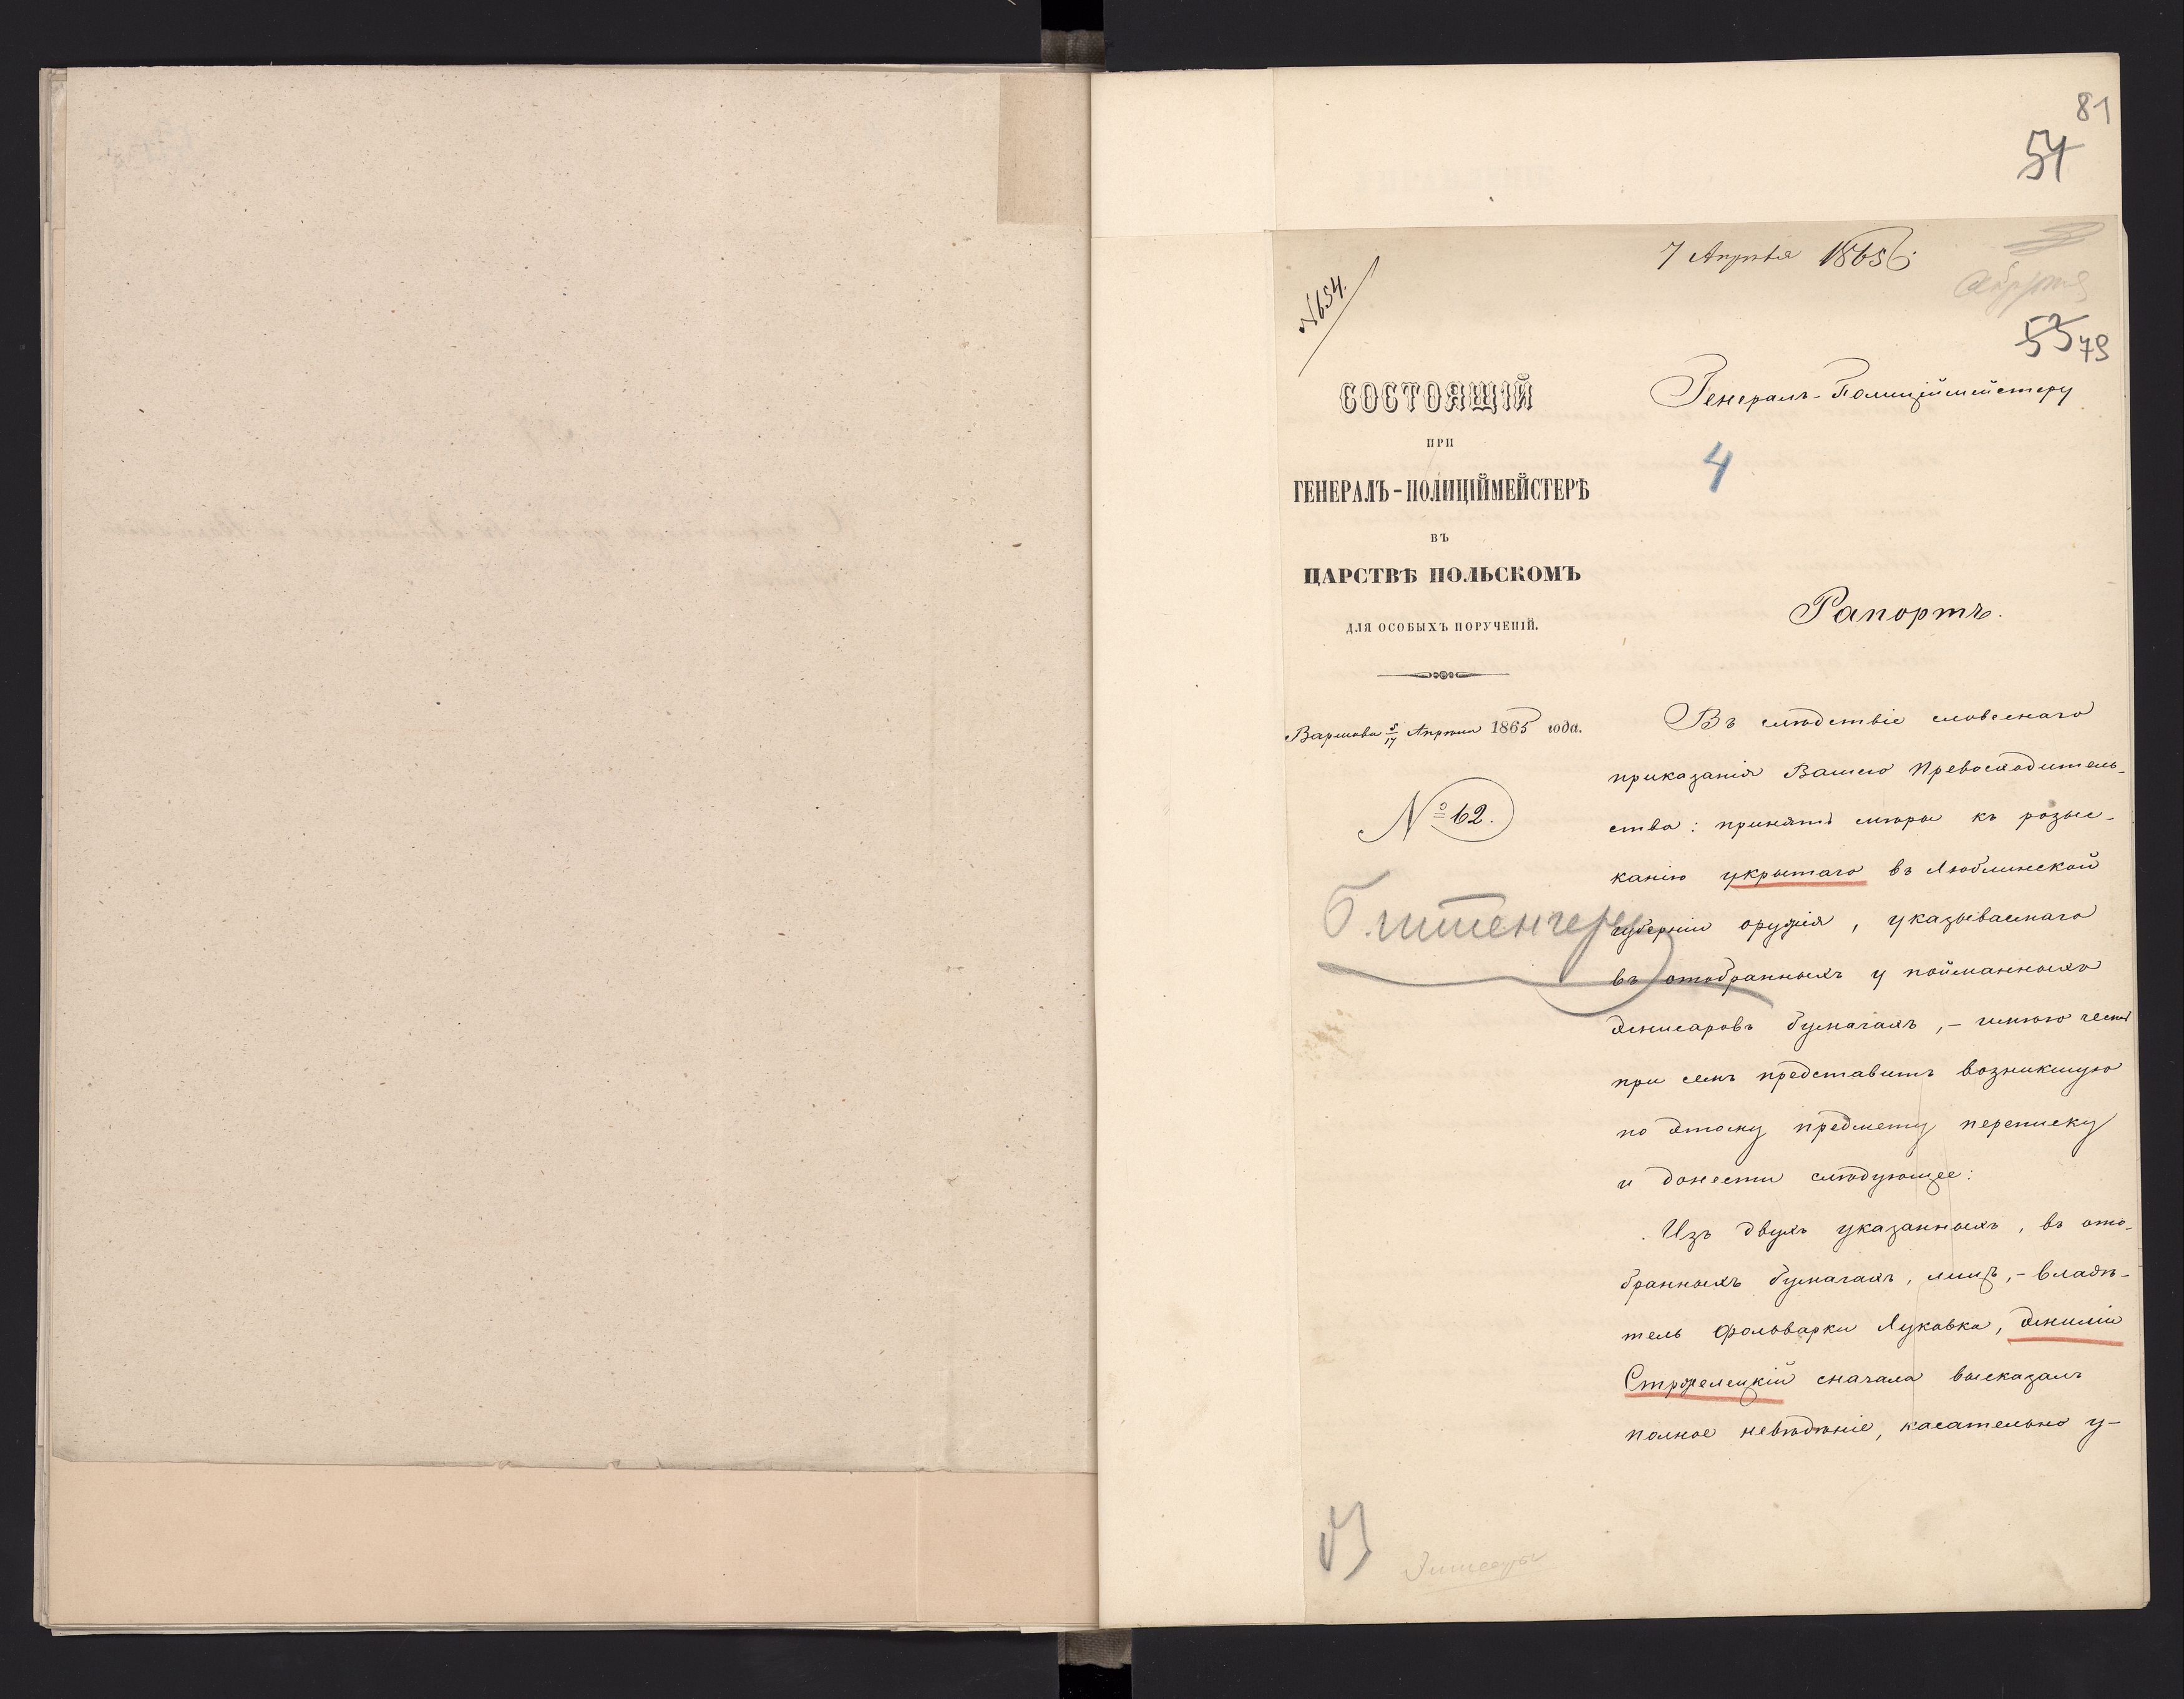 81
54
7 Апрѣля 1865 г.
№ 654.
53 79
СОСТОЯЩІЙ
ПРИ
ГЕНЕРАЛЪ-ПОЛИЦІЙМЕЙСТЕРѢ
ВЪ
ЦАРСТВѢ ПОЛЬСКОМЪ
ДЛЯ ОСОБЫХЪ ПОРУЧЕНІЙ.
Варшава 5/17 Апрѣля 1865 года.
№ 62.
Генералъ-Полиціймейстеру
4
Рапортъ.
Въ слѣдствіе словеснаго
приказанія Вашего Превосходитель-
ства: принять мѣры къ розыс-
канію укрытаго въ Люблинской
губерніи оружія, указываемаго
въ отобранныхъ у пойманныхъ
эмисаровъ бумагахъ, - имѣю честь
при семъ представить возникшую
по этому предмету переписку
и донести слѣдующее:
Изъ двухъ указанныхъ, въ ото-
бранныхъ бумагахъ, лицъ, - владѣ-
тель фольварка Лукавка, Эмилій
Стржелецкій сначала высказалъ
полное невѣдѣніе, касательно у-
Эмисары